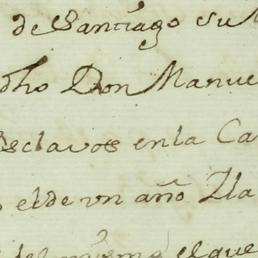 de Santiago su
dho Don Manue
esclavos en la Ca
elde un año Lla
del mismo el que